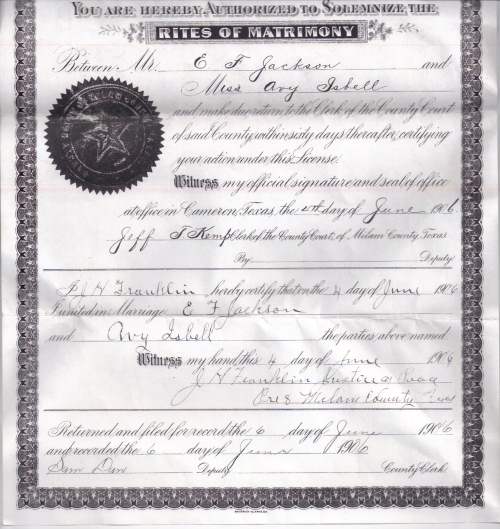 YOU ARE HEREBY AUTHORIZED TO SOLEMNIZE THE
RITES OF MATRIMONY
Between Mr. E F Jackson and
Miss Avy Isbell
and make due return to the Clerk of the County Court
of said County within sixty days thereafter, certifying
your action under this License.
Witness my official signature and seal of office
at office in Cameron, Texas, the 4th day of June 1906
Jeff T Kemp Clerk of the County Court, of Milam County, Texas
By Deputy
I, J H Franklin hereby certify that on the 4 day of June 1906
I united in Marriage E F Jackson
and Avy Isbell the parties above named
Witness my hand this 4 day of June 1906
J H Franklin Justice Peace
Pre 8 Milam County
Returned and filed for record the 6 day of June 1906
and recorded the 6 day of June 1906
Deputy County Clerk